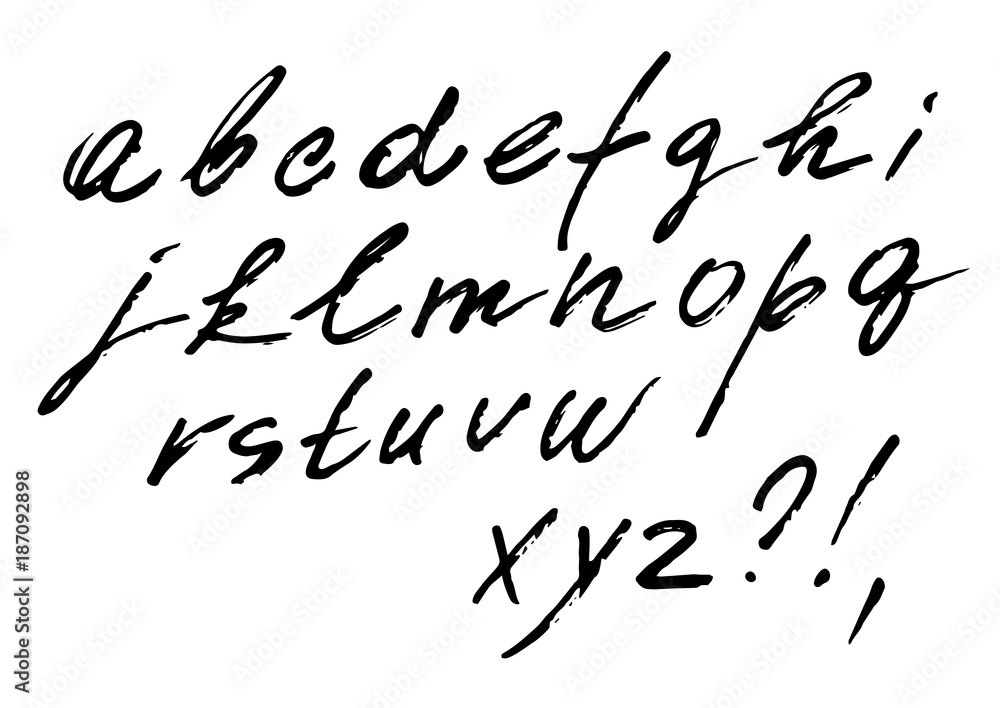 abcdefghi
jklmnopq
rstuvw
xyz?!,
Adobe Stock | #187092898